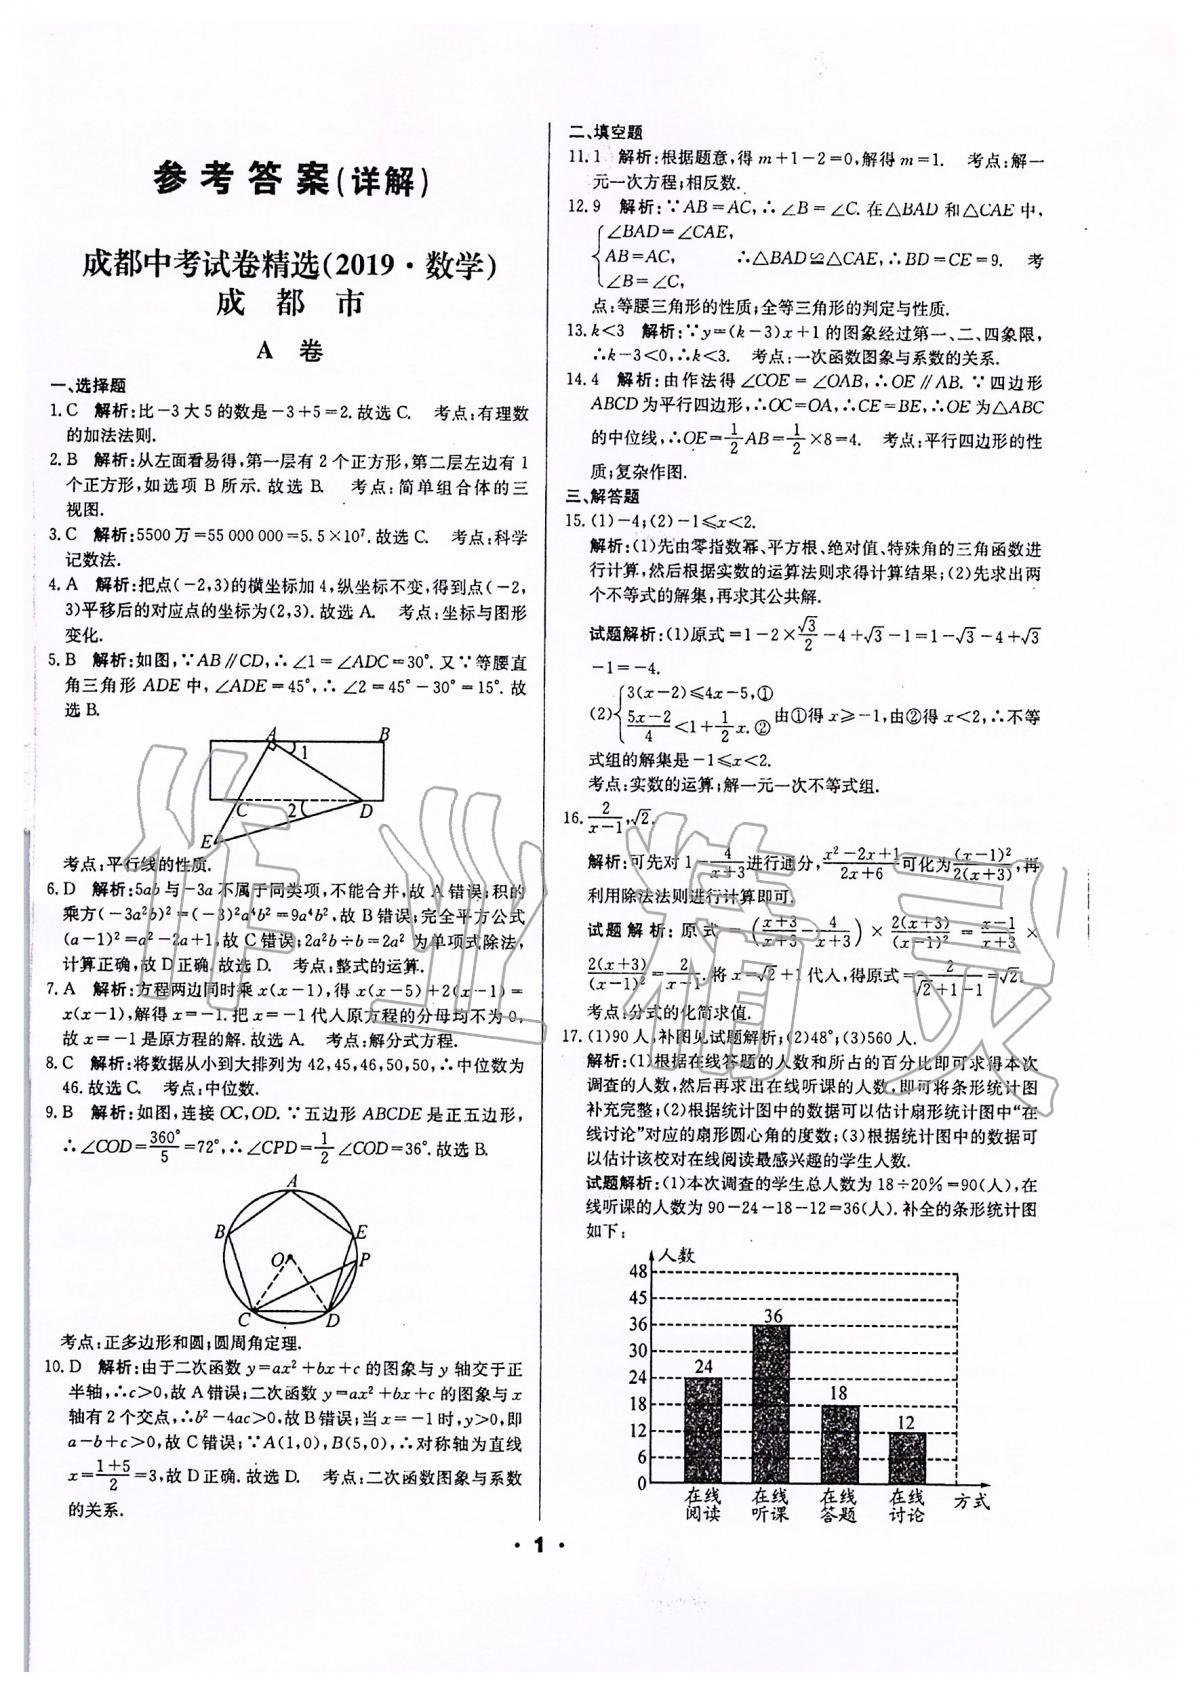 参考答案(详解)
成都中考试卷精选(2019·数学)
成 都 市
A 卷
一、选择题
1. C 解析:比-3大5的数是-3+5=2. 故选C. 考点:有理数
的加法法则.
2. B 解析:从左面看易得,第一层有2个正方形,第二层左边有1
个正方形,如选项B所示. 故选B. 考点:简单组合体的三
视图.
3. C 解析:5500万=55 000 000=5.5×10⁷. 故选C. 考点:科学
记数法.
4. A 解析:把点(-2,3)的横坐标加4,纵坐标不变,得到点(-2,
3)平移后的对应点的坐标为(2,3). 故选A. 考点:坐标与图形
变化.
5. B 解析:如图,∵AB∥CD,∴∠1=∠ADC=30°. 又∵等腰直
角三角形ADE中,∠ADE=45°,∴∠2=45°-30°=15°. 故
选B.
A B
1
C 2 D
E
考点:平行线的性质.
6. D 解析:5ab与-3a不属于同类项,不能合并,故A错误;积的
乘方(-3a²b)²=(-3)²a⁴b²=9a⁴b²,故B错误;完全平方公式
(a-1)²=a²-2a+1,故C错误;2a²b÷b=2a²为单项式除法,
计算正确,故D正确. 故选D. 考点:整式的运算.
7. A 解析:方程两边同时乘x(x-1),得x(x-5)+2(x-1)=
x(x-1),解得x=-1. 把x=-1代人原方程的分母均不为0,
故x=-1是原方程的解. 故选A. 考点:解分式方程.
8. C 解析:将数据从小到大排列为42,45,46,50,50,∴中位数为
46. 故选C. 考点:中位数.
9. B 解析:如图,连接OC,OD. ∵五边形ABCDE是正五边形,
∴∠COD=360°/5=72°,∴∠CPD=1/2∠COD=36°. 故选B.
A
B E
O P
C D
考点:正多边形和圆;圆周角定理.
10. D 解析:由于二次函数y=ax²+bx+c的图象与y轴交于正
半轴,∴c>0,故A错误;二次函数y=ax²+bx+c的图象与x
轴有2个交点,∴b²-4ac>0,故B错误;当x=-1时,y>0,即
a-b+c>0,故C错误;∵A(1,0),B(5,0),∴对称轴为直线
x=(1+5)/2=3,故D正确. 故选D. 考点:二次函数图象与系数
的关系.
二、填空题
11. 1 解析:根据题意,得m+1-2=0,解得m=1. 考点:解一
元一次方程;相反数.
12. 9 解析:∵AB=AC,∴∠B=∠C. 在△BAD和△CAE中,
∠BAD=∠CAE,
AB=AC, ∴△BAD≌△CAE,∴BD=CE=9. 考
∠B=∠C,
点:等腰三角形的性质;全等三角形的判定与性质.
13. k<3 解析:∵y=(k-3)x+1的图象经过第一、二、四象限,
∴k-3<0,∴k<3. 考点:一次函数图象与系数的关系.
14. 4 解析:由作法得∠COE=∠OAB,∴OE∥AB. ∵四边形
ABCD为平行四边形,∴OC=OA,∴CE=BE,∴OE为△ABC
的中位线,∴OE=1/2AB=1/2×8=4. 考点:平行四边形的性
质;复杂作图.
三、解答题
15. (1)-4;(2)-1≤x<2.
解析:(1)先由零指数幂、平方根、绝对值、特殊角的三角函数进
行计算,然后根据实数的运算法则求得计算结果;(2)先求出两
个不等式的解集,再求其公共解.
试题解析:(1)原式=1-2×√3/2-4+√3-1=1-√3-4+√3
-1=-4.
3(x-2)≤4x-5,①
(2) (5x-2)/4<1+1/2x.② 由①得x≥-1,由②得x<2,∴不等
式组的解集是-1≤x<2.
考点:实数的运算;解一元一次不等式组.
16. 2/(x-1),√2.
解析:可先对1-4/(x+3)进行通分,(x²-2x+1)/(2x+6)可化为(x-1)²/2(x+3),再
利用除法法则进行计算即可.
试题解析:原式=((x+3)/(x+3)-4/(x+3))×2(x+3)/(x-1)²=(x-1)/(x+3)×
2(x+3)/(x-1)²=2/(x-1). 将x=√2+1代人,得原式=2/(√2+1-1)=√2.
考点:分式的化简求值.
17. (1)90人,补图见试题解析;(2)48°;(3)560人.
解析:(1)根据在线答题的人数和所占的百分比即可求得本次
调查的人数,然后再求出在线听课的人数,即可将条形统计图
补充完整;(2)根据统计图中的数据可以估计扇形统计图中“在
线讨论”对应的扇形圆心角的度数;(3)根据统计图中的数据可
以估计该校对在线阅读最感兴趣的学生人数.
试题解析:(1)本次调查的学生总人数为18÷20%=90(人),在
线听课的人数为90-24-18-12=36(人). 补全的条形统计图
如下:
人数
48
45
36
30
24
18
12
6
0
24 36 18 12
在线 在线 在线 在线
阅读 听课 答题 讨论
方式
· 1 ·
作业精灵